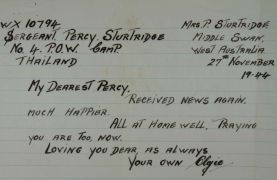 WX 10794
Mrs. P. Sturtridge
Sergeant Percy Sturtridge
Middle Swan,
No. 4. P.O.W. Camp
West Australia
Thailand
27th November
19.44
My Dearest Percy.
Received news again.
much happier.
All at home well. Praying
you are too, now.
Loving you dear, as always
Your own Elgie